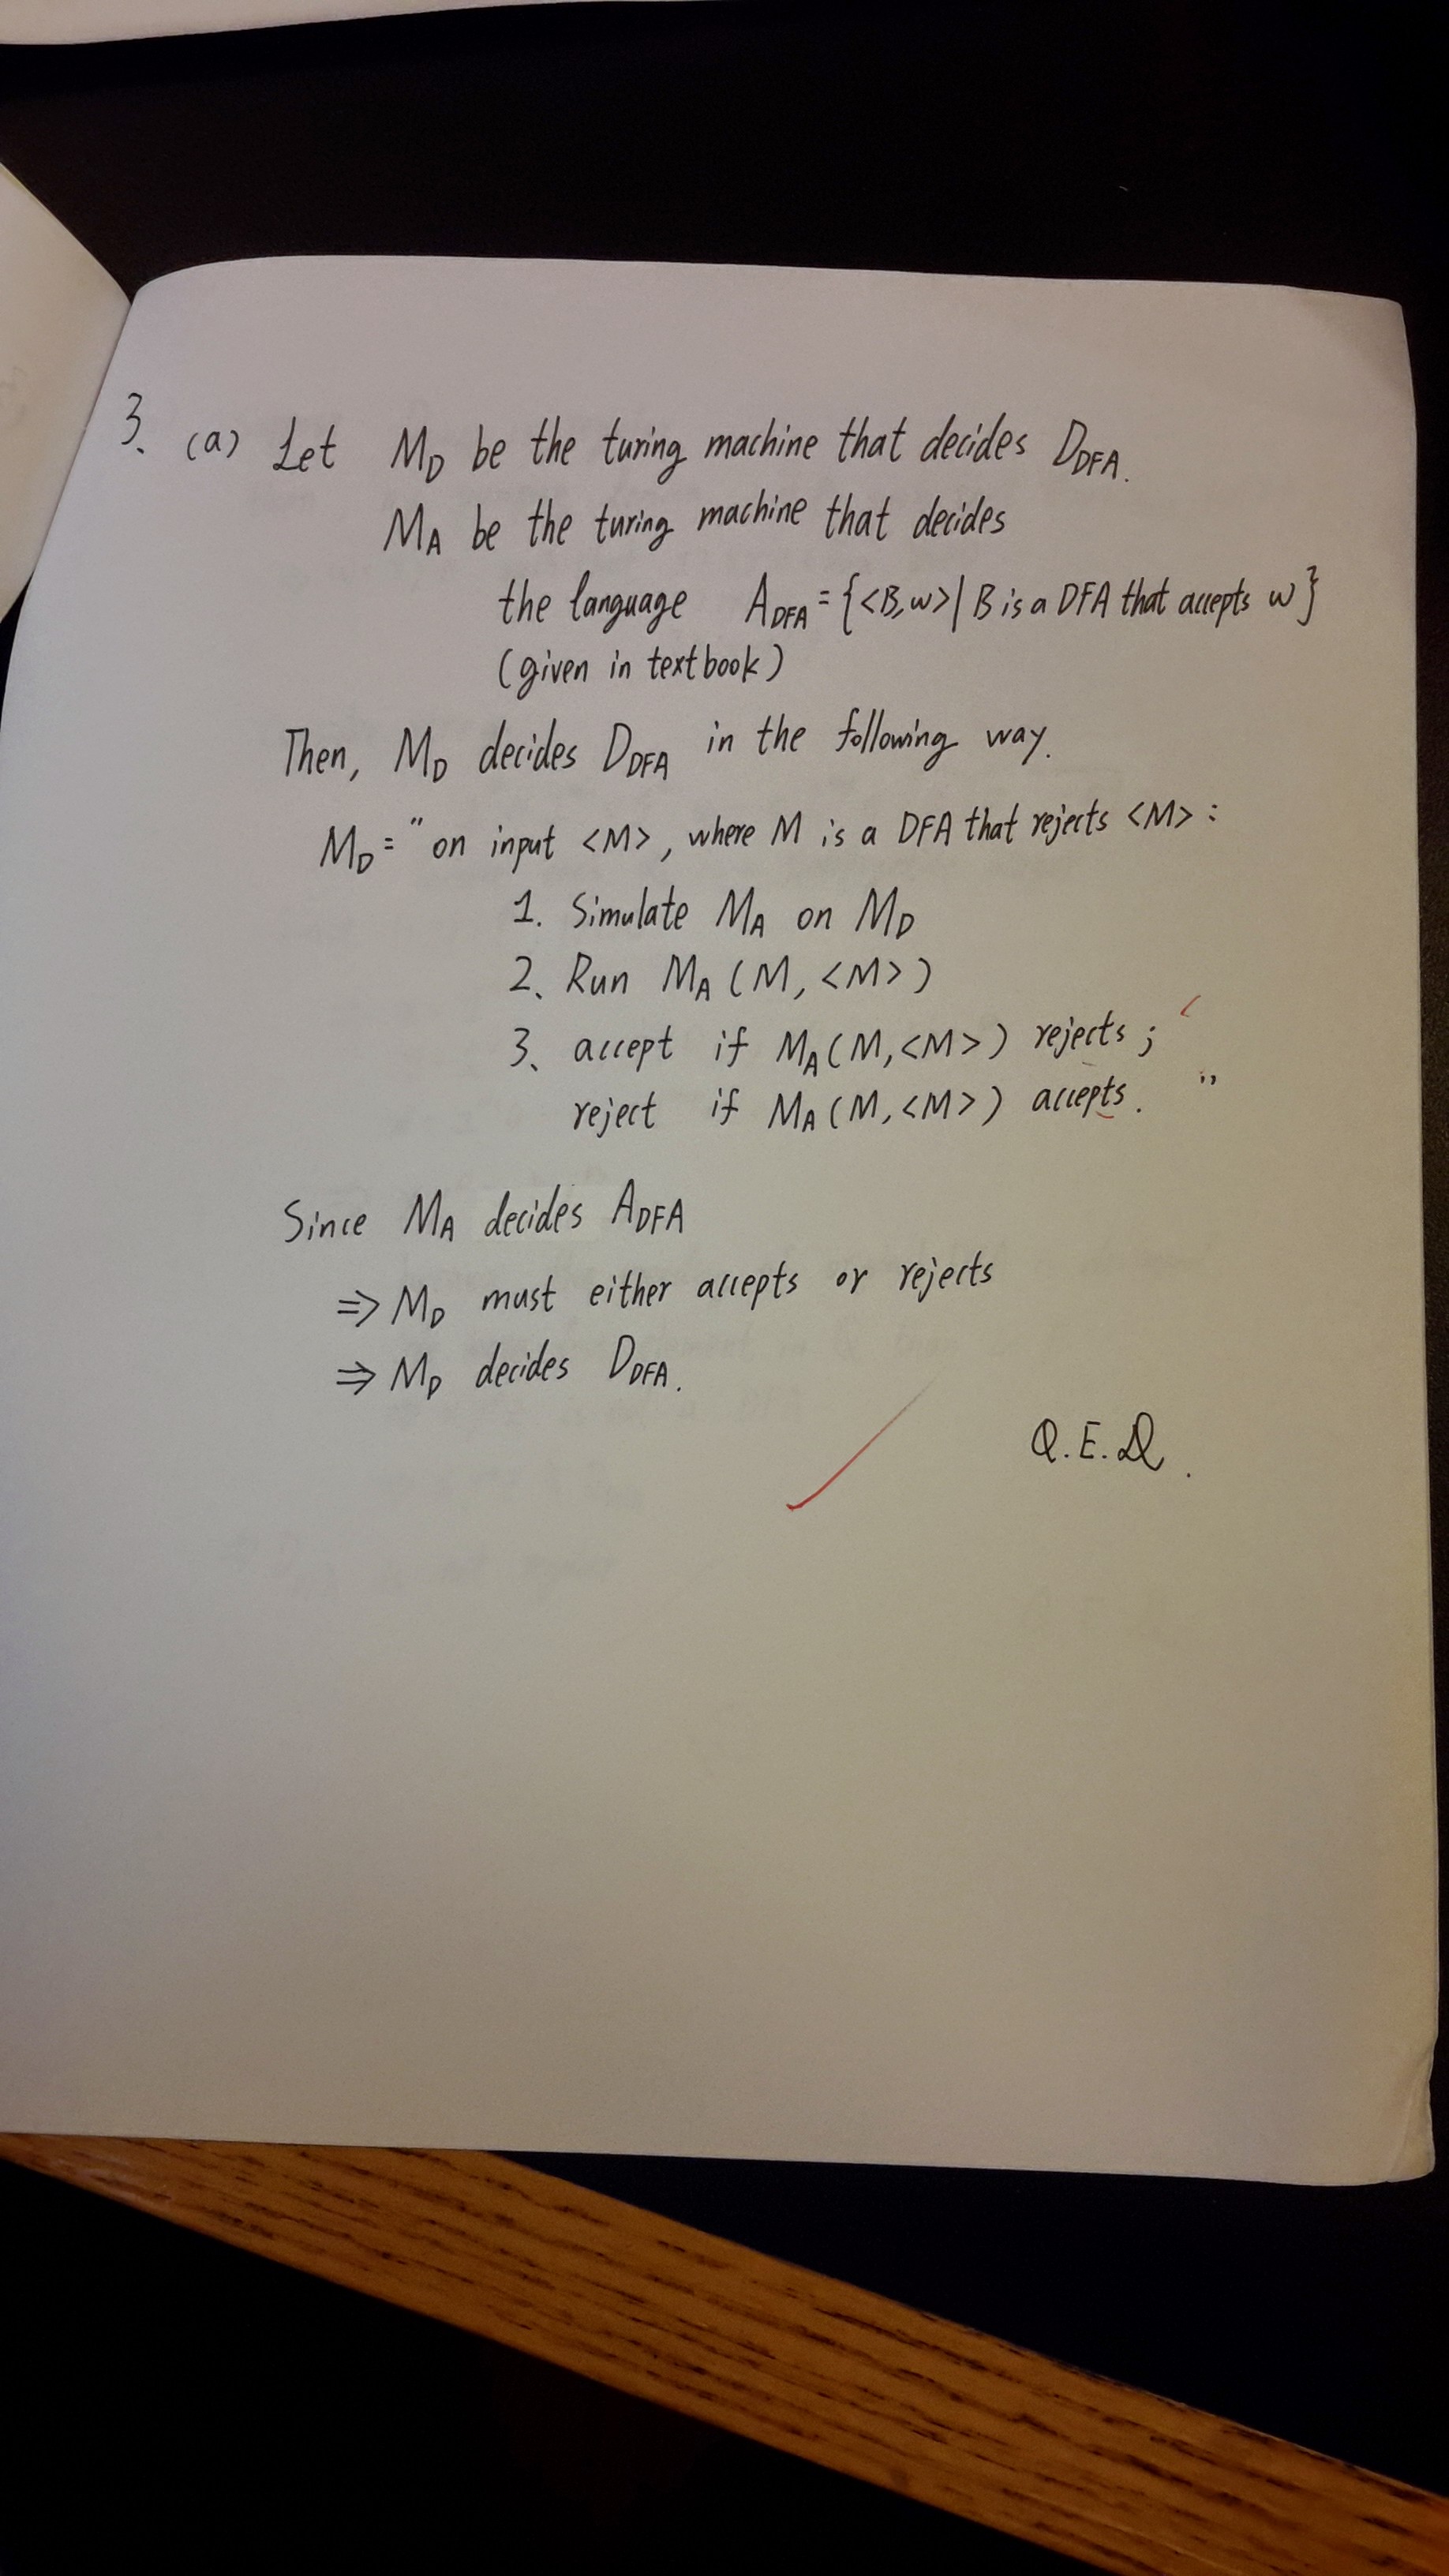 3. (a) Let M_D be the turing machine that decides D_DFA.
M_A be the turing machine that decides
the language A_DFA = {<B,w>| B is a DFA that accepts w}
(given in textbook)
Then, M_D decides D_DFA in the following way.
M_D = "on input <M>, where M is a DFA that rejects <M> :
1. Simulate M_A on M_D
2. Run M_A (M, <M>)
3. accept if M_A (M, <M>) rejects ;
reject if M_A (M, <M>) accepts. "
Since M_A decides A_DFA
⇒ M_D must either accepts or rejects
⇒ M_D decides D_DFA.
Q.E.D.